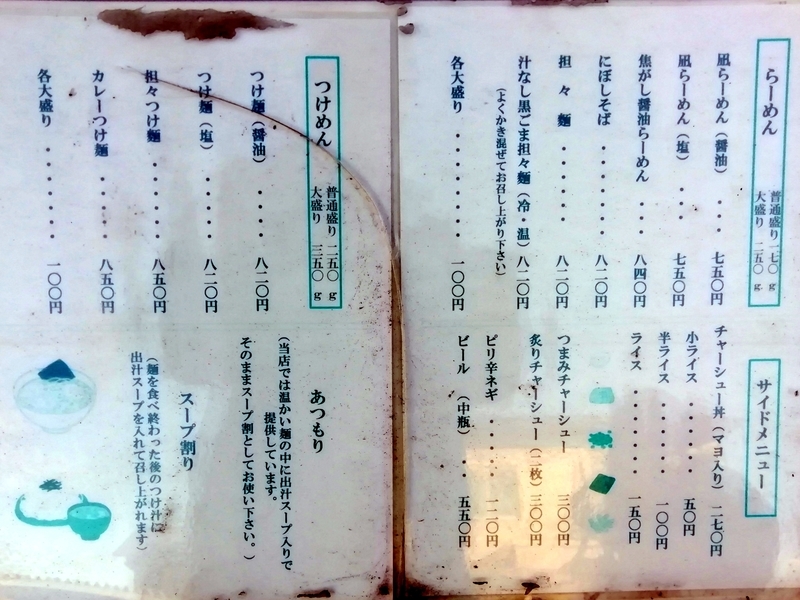 らーめん
普通盛り 一七〇g
大盛り 二五〇g
凪らーめん（醤油）・・・七五〇円
凪らーめん（塩）・・・七五〇円
焦がし醤油らーめん・・・八四〇円
にぼしそば・・・・・八二〇円
担々麺・・・・・八二〇円
汁なし黒ごま担々麺（冷・温）八二〇円
（よくかき混ぜてお召し上がり下さい）
各大盛り・・・・・・・一〇〇円
サイドメニュー
チャーシュー丼（マヨ入り）二七〇円
小ライス・・・・・五〇円
半ライス・・・・・一〇〇円
ライス・・・・・・一五〇円
つまみチャーシュー 三〇〇円
炙りチャーシュー（二枚）三〇〇円
ピリ辛ネギ・・・・・一二〇円
ビール（中瓶）・五五〇円
つけめん
普通盛り 二五〇g
大盛り 三五〇g
つけ麺（醤油）・・・・八二〇円
つけ麺（塩）・・・・・八二〇円
担々つけ麺・・・・・・八五〇円
カレーつけ麺・・・・・八五〇円
各大盛り・・・・・・・一〇〇円
あつもり
（当店では温かい麺の中に出汁スープ入りで
提供しています。
そのままスープ割としてお使い下さい。）
スープ割り
（麺を食べ終わった後のつけ汁に
出汁スープを入れて召し上がれます）